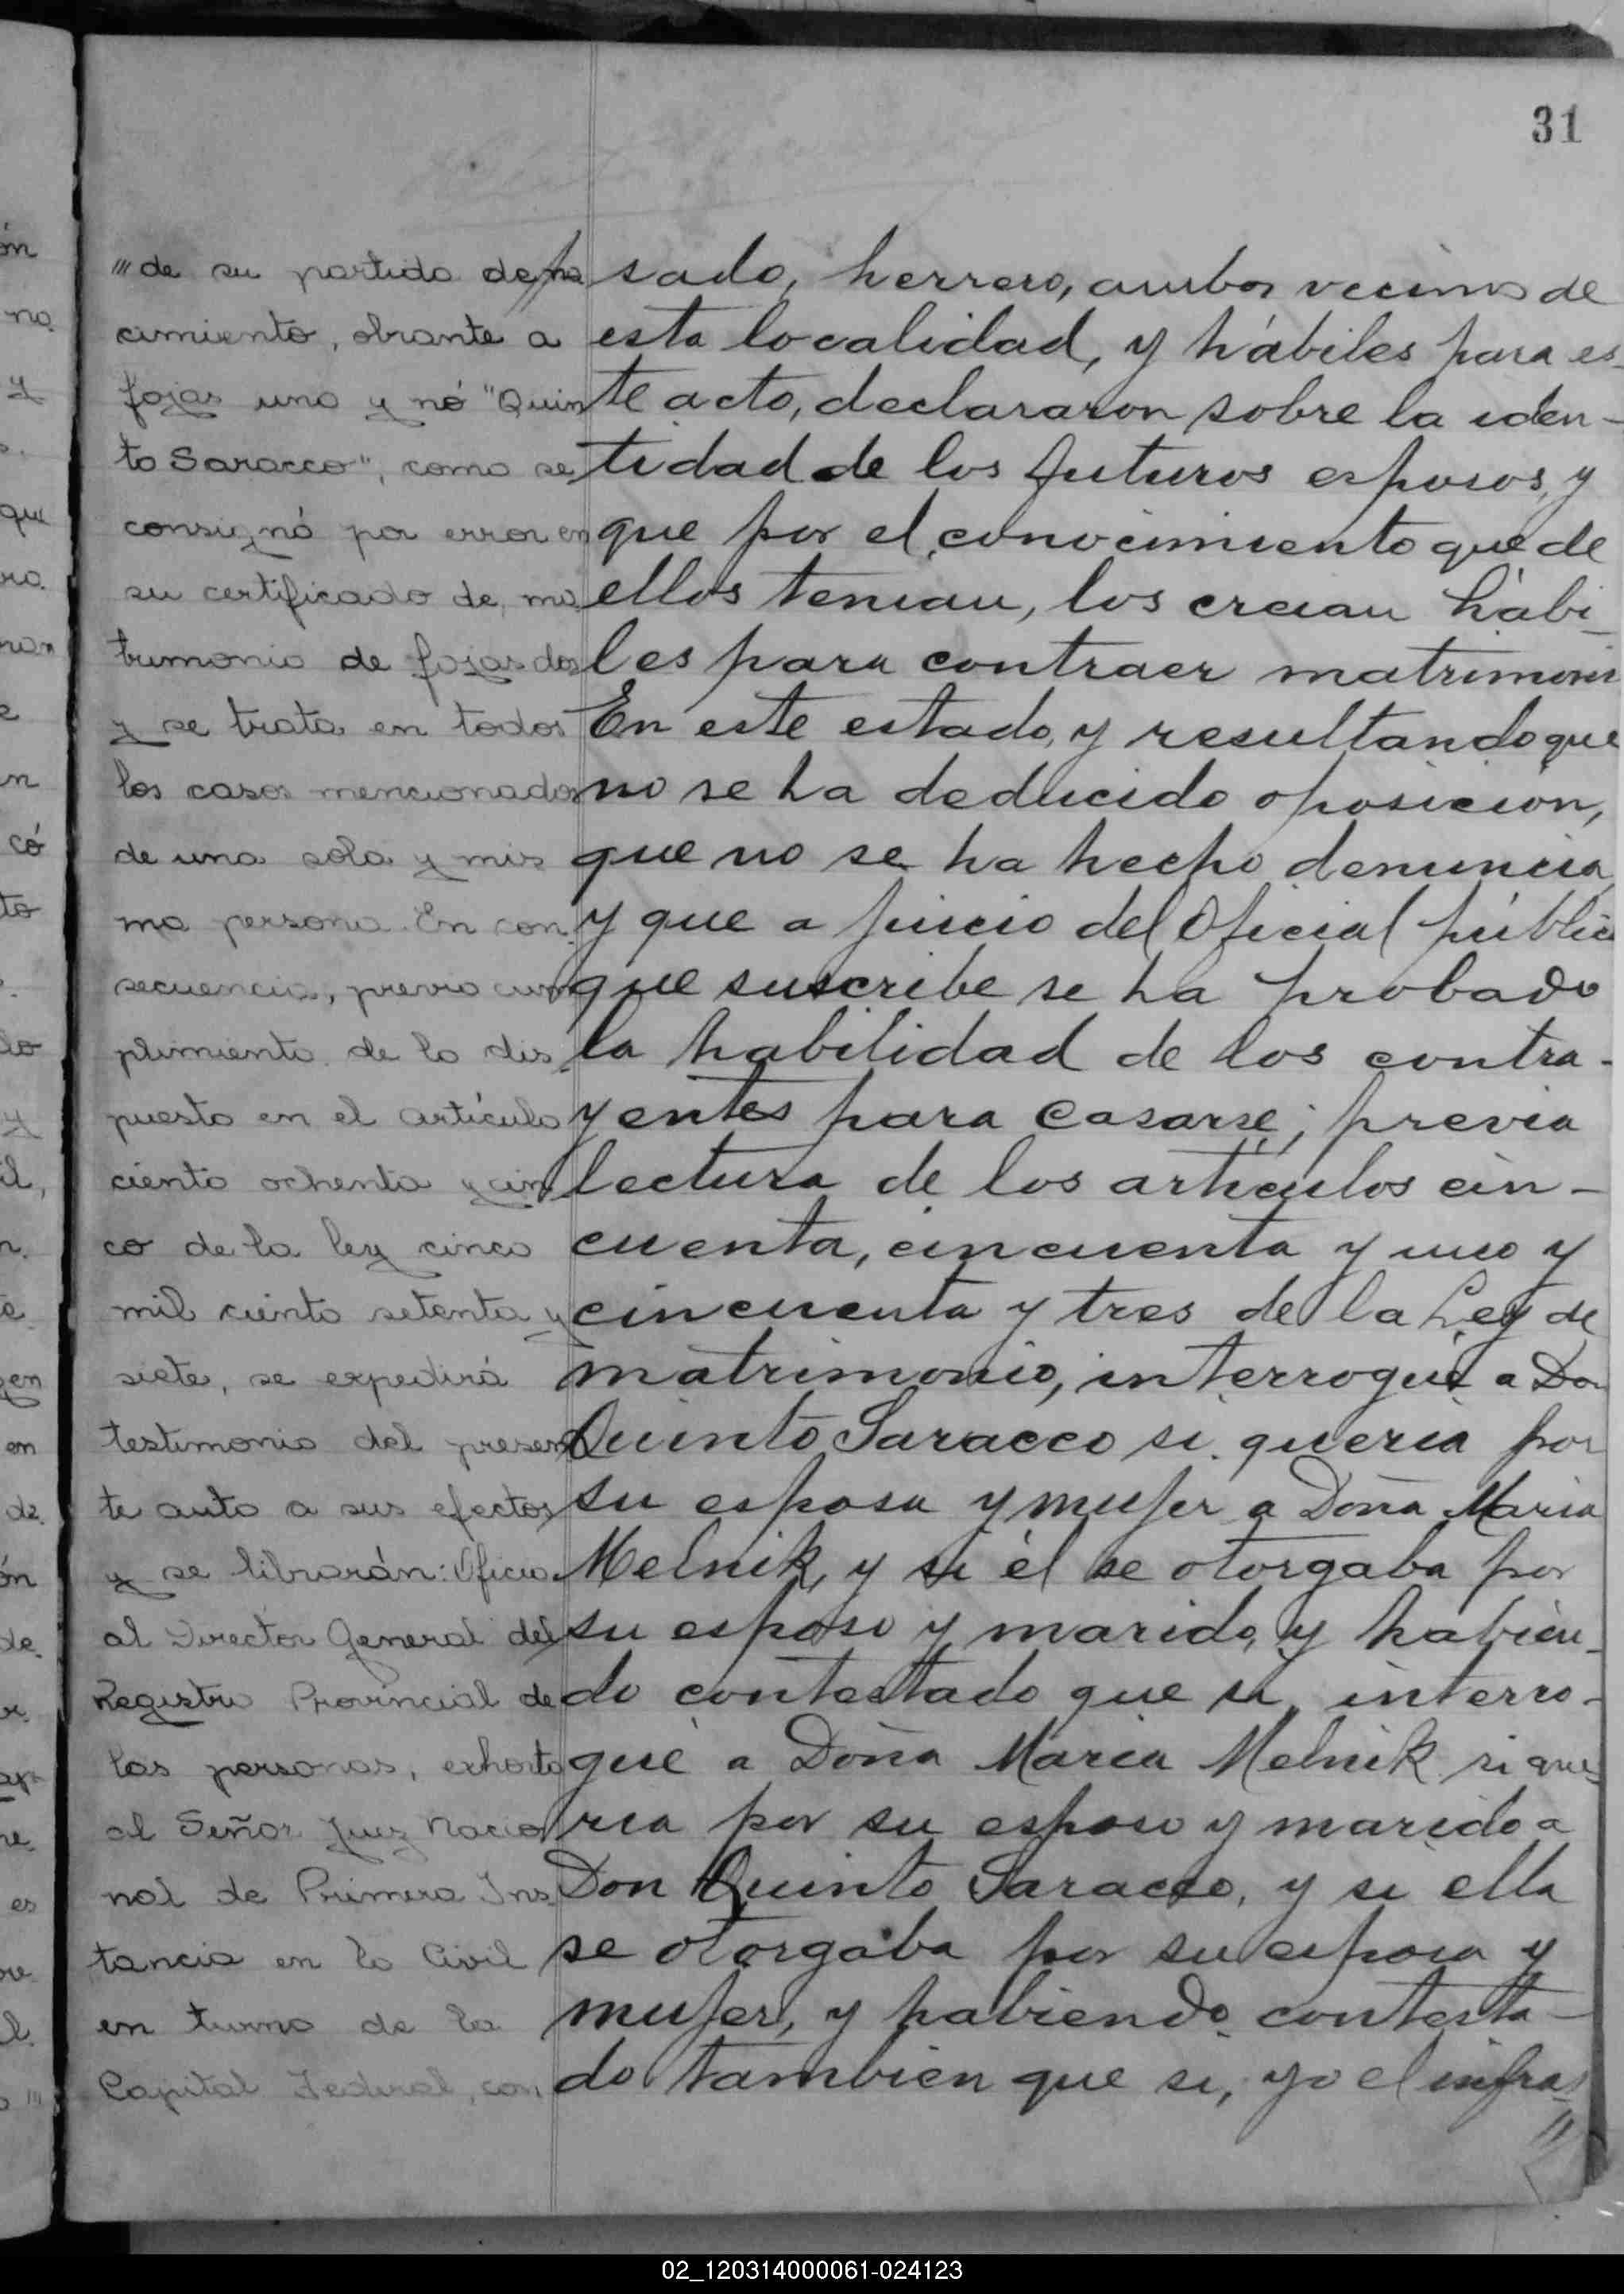 31
"'de su partida de na
cimiento, obrante a
fojas uno y nó "Quin
to Saracco", como se
consignó por error en
su certificado de ma
trimonio de fojas dos
y se trata en todos
los casos mencionados
de una sola y mis
ma persona. En con-
secuencia, previo cum
plimiento de lo dis-
puesto en el artículo
ciento ochenta y cin
co de la ley cinco
mil ciento setenta y
siete, se expedirá
testimonio del presen
te auto a sus efectos
y se librarán: Oficio
al Director General del
Registro Provincial de
las personas, exhorto
al Señor Juez Nacio
nal de Primera Ins-
tancia en lo Civil
en turno de la
Capital Federal, con
sado, herrero, ambos vecinos de
esta localidad, y hábiles para es-
te acto, declararon sobre la iden-
tidad de los futuros esposos, y
que por el conocimiento que de
ellos tenian, los creian hábi-
les para contraer matrimonio
En este estado, y resultando que
no se ha deducido oposicion,
que no se ha hecho denuncia,
y que a juicio del Oficial público
que suscribe se ha probado
la habilidad de los contra-
yentes para casarse; previa
lectura de los artículos cin-
cuenta, cincuenta y uno y
cincuenta y tres de la Ley de
matrimonio, interrogué a Don
Quinto Saracco si queria por
su esposa y mujer a Doña Maria
Melnik, y si él se otorgaba por
su esposo y marido, y habien-
do contestado que si, interro-
gué a Doña Maria Melnik si que-
ria por su esposo y marido a
Don Quinto Saracco, y si ella
se otorgaba por su esposa y
mujer, y habiendo contesta-
do tambien que si, yo el infras
02_120314000061-024123